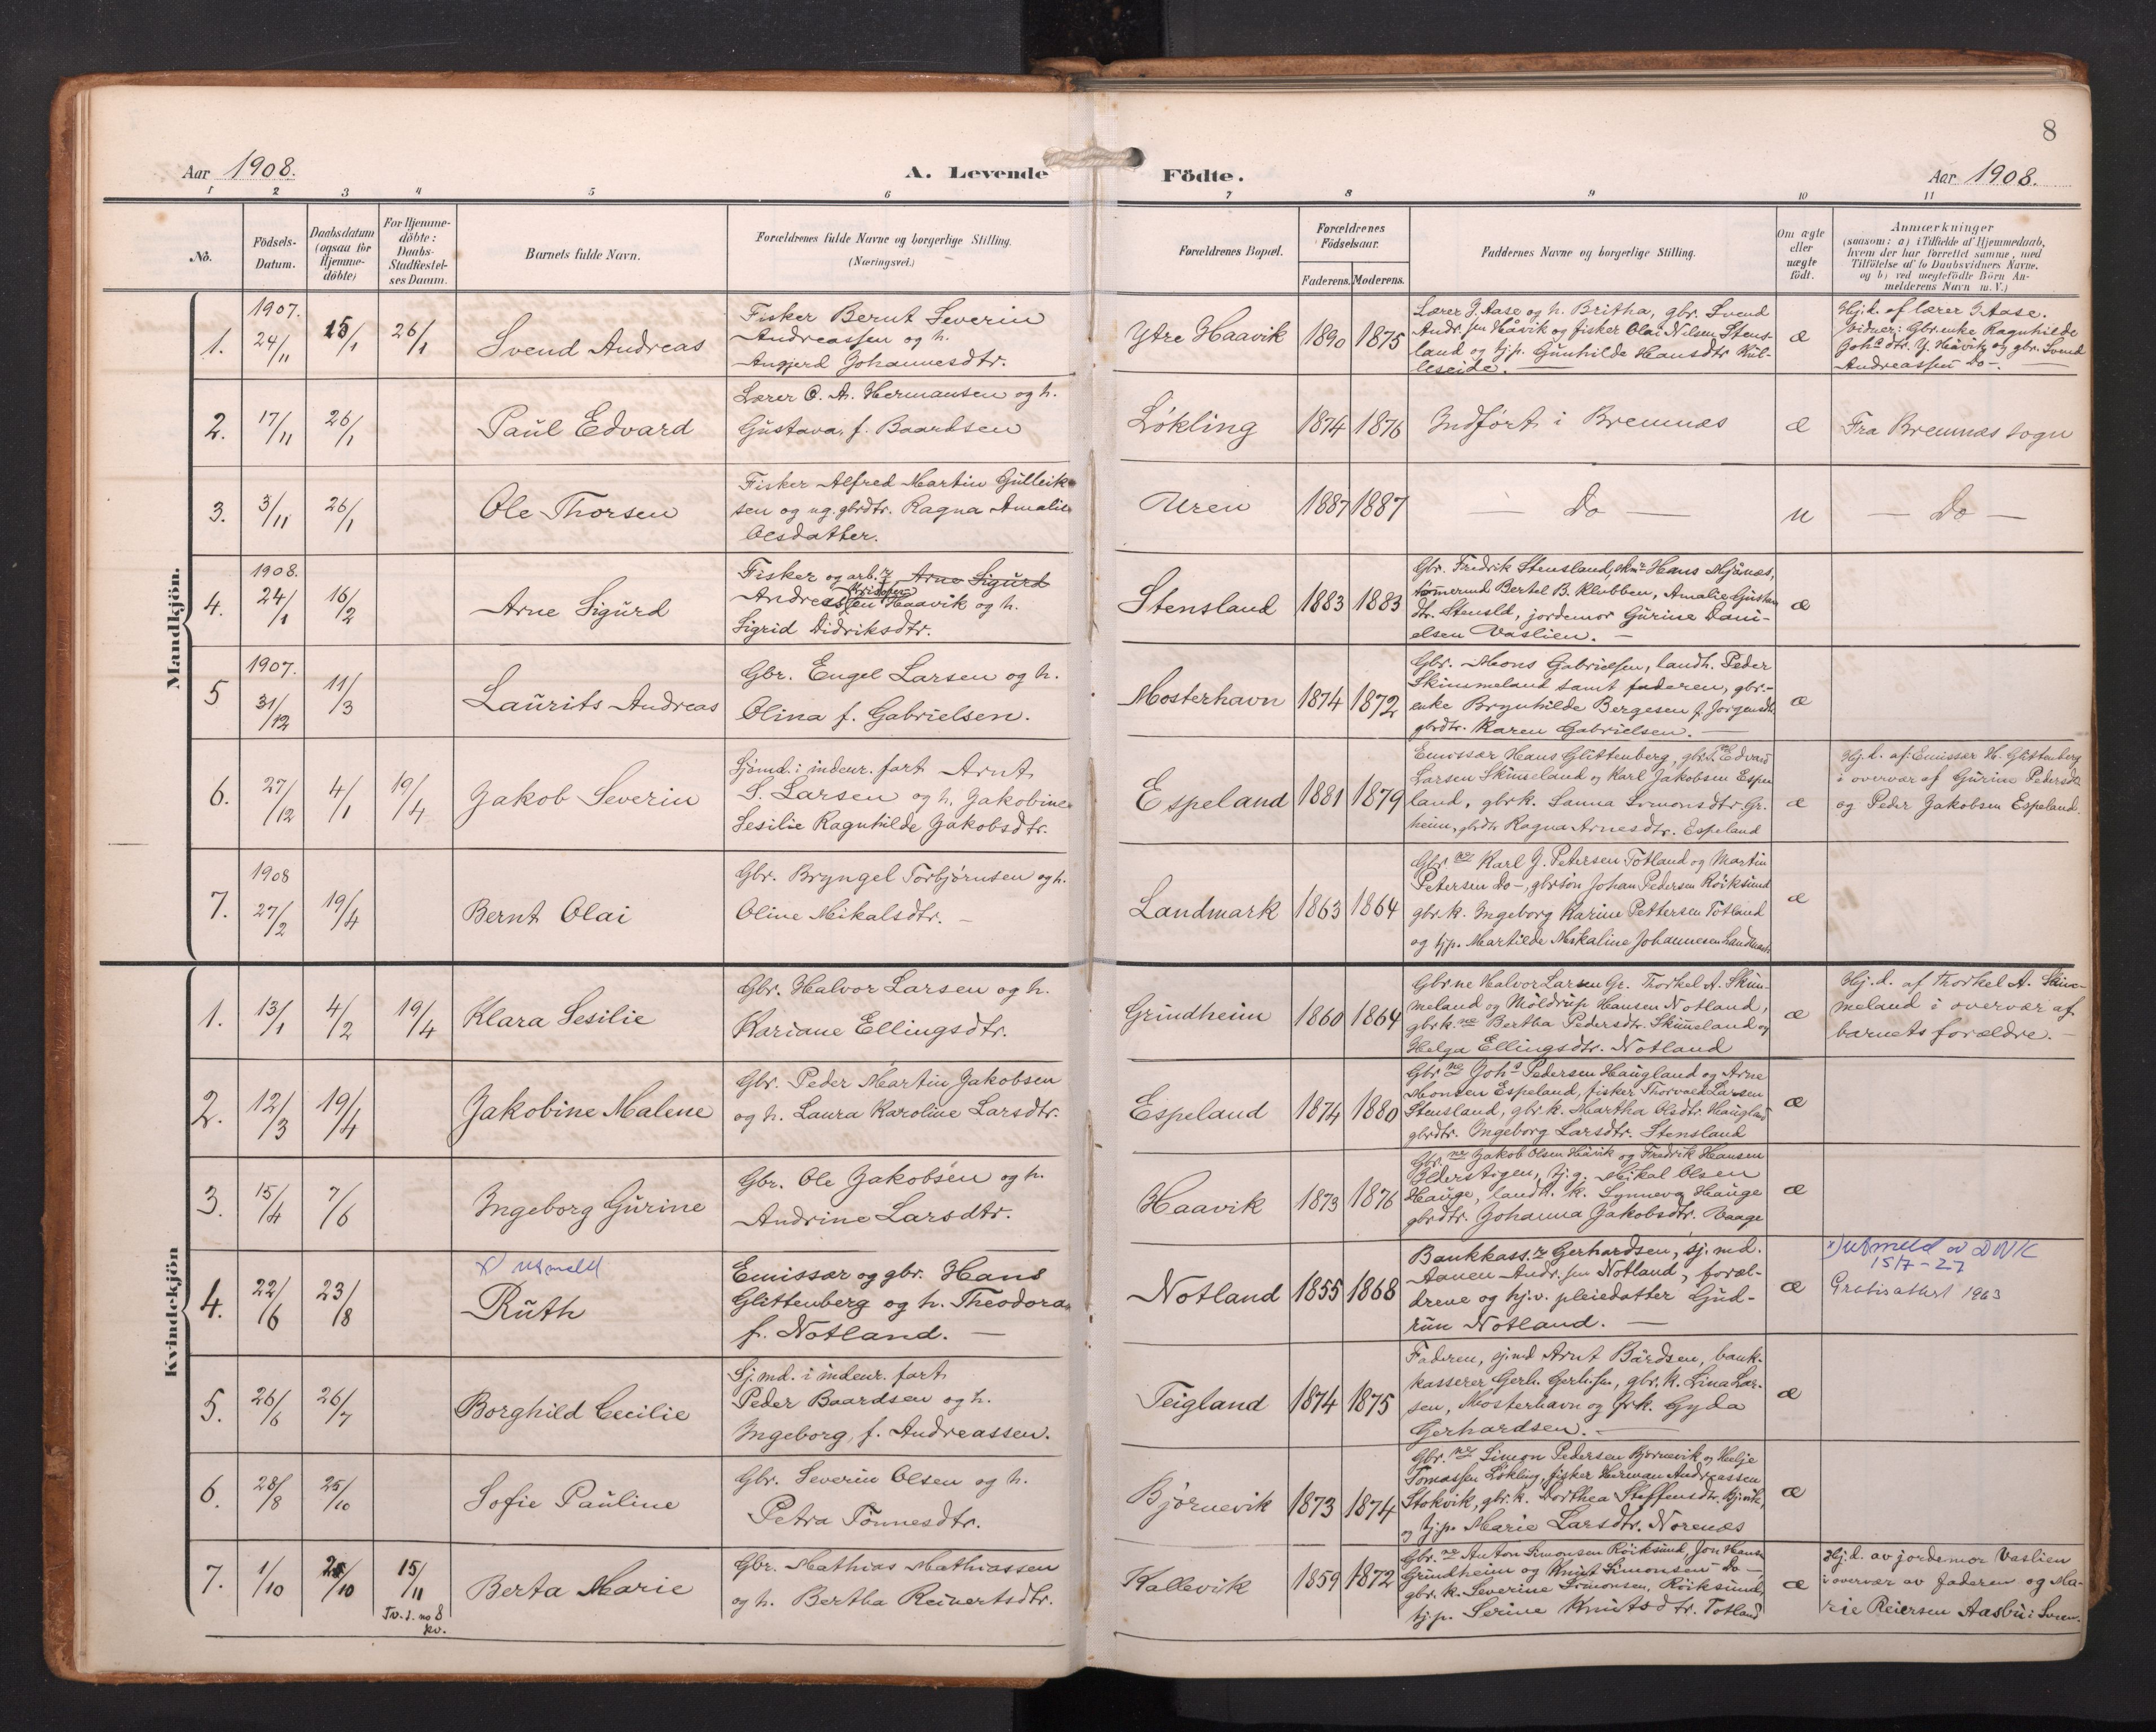 8
Aar 1908.
A. Levende Födte.
Aar 1908.
1 2 3 4 5 6 7 8 9 10 11
No.
Födsels-
Datum.
Daabsdatum
(ogsaa for
Hjemme-
döbte)
For Hjemme-
döbte:
Daabs-
Stadfestel-
ses Datum.
Barnets fulde Navn.
Forældrenes fulde Navne og borgerlige Stilling.
(Næringsvei.)
Forældrenes Bopæl.
Forældrenes
Födselsaar.
Faderens. Moderens.
Faddernes Navne og borgerlige Stilling.
Om ægte
eller
uægte
födt.
Anmærkninger
(saasom: a) i Tilfælde af Hjemmedaab,
hvem der har forrettet samme, med
Tilföielse af to Daabsvidners Navne.
og b) ved uægtefödte Börn An-
melderens Navn m. V.)
Mandkjön.
1. 1907. 24/11 15/1 26/1
Svend Andreas
Fisker Bernt Severin
Andreassen og h.
Angjerd Johannesdtr.
Ytre Haavik 1890 1875
Lærer J. Aase og h. Britha, gbr. Svend
Andr.sen Håvik og fisker Olai Nilsen Stens-
land og tj.p. Gunhilde Hansdtr. Kul-
leseide. —
æ
Hj.d. af lærer J. Aase.
Vidner: Gbr.enke Ragnhilde
Joh.s dtr. Y. Håvik og gbr. Svend
Andreassen Do —.
2. 17/11 26/1
Paul Edvard
Lærer O. A. Hermansen og h.
Gustava, f. Baardsen
Løkling 1874 1876
Indført i Bremnæs
æ
Fra Bremnæs sogn
3. 3/11 26/1
Ole Thorsen
Fisker Alfred Martin Gulleik-
sen og ug. gbrdtr. Ragna Amalie
Olsdatter.
Uren 1887 1887
— Do —
u
— Do —
4. 1908. 24/1 16/2
Arne Sigurd
Fisker og arb.r Arne Sigurd
Andreassen Haavik og h.
Sigrid Didriksdtr.
Stensland 1883 1883
Gbr. Fredrik Stensland, Hans Mjånæs,
tømmermd Bertel B. Klubben, Amalie Gustav
dtr. Stensld, jordemor Gurine Dani-
elsen Vaslien. —
æ
5 1907. 31/12 11/3
Laurits Andreas
Gbr. Engel Larsen og h.
Olina f. Gabrielsen.
Mosterhavn 1874 1872
Gbr. Mons Gabrielsen, landh. Peder
Skimmeland samt faderen, gbr.-
enke Brynhilde Bergesen f. Jørgensdtr.
gbrdtr. Karen Gabrielsen. —
æ
6. 27/12 4/1 19/4
Jakob Severin
Sjømd. i indenr. fart Arnt
S. Larsen og h. Jakobine
Sesilie Ragnhilde Jakobsdtr.
Espeland 1881 1879
Emissær Hans Glittenberg, gbr.ne Edvard
Larsen Skimeland og Karl Jakobsen Espe
land, gbrk. Sanna Simonsdtr Gr.
heim, gbrdtr Ragna Arnesdtr. Espeland
æ
Hj.d. af Emissær H. Glittenberg
i overvær af Gurine Pedersdtr
og Peder Jakobsen Espeland.
7. 1908 27/2 19/4
Bernt Olai
Gbr. Bryngel Torbjørnsen og h.
Oline Mikalsdtr. —
Landmark 1863 1864
Gbr.ne Karl J. Petersen Totland og Martin
Petersen Do —, gbrsøn Johan Pedersen Røiksund
gbr.k. Ingeborg Karine Pettersen Totland
og tjp. Martilde Mikaline Johannesen Landmark
æ
Kvindekjön
1. 13/1 4/2 19/4
Klara Sesilie
Gbr. Halvor Larsen og h.
Kariane Ellingsdtr.
Grindheim 1860 1864
Gbr.ne Halvor Larsen Gr. Thorkel A. Skim-
meland og Møldrup Hansen Notland,
gbrk.ne Bertha Pedersdtr. Skimeland og
Helga Ellingsdtr. Notland
æ
Hj.d. af Thorkel A. Skim-
meland i overvær af
barnets forældre. —
2. 12/3 19/4
Jakobine Malene
Gbr. Peder Martin Jakobsen
og h. Laura Karoline Larsdtr.
Espeland 1874 1880
Gbr.ne Joh.s Pedersen Haugland og Arne
Monsen Espeland, fisker Thorvald Larsen
Stensland, gbr.k. Martha Olsdtr. Haugland
gbrdtr. Ingeborg Larsdtr. Stensland
æ
3. 15/4 7/6
Ingeborg Gurine
Gbr. Ole Jakobsen og h.
Andrine Larsdtr.
Haavik 1873 1876
Gbr.ne Jakob Olsen Håvik og Fredrik Hansen
tj.g. Mikal Olsen
Hauge, landh. k. Synneva Hauge
gbrdtr. Johanna Jakobsdtr. Vaage
æ
4. 22/6 23/8
x) utmeldt
Ruth
Emissær og gbr. Hans
Glittenberg og h. Theodora
f. Notland. —
Notland 1855 1868
Bankkass.r Gerhardsen, sj.md.
Aanen Andr.sen Notland, foræl-
drene og hj.v. pleiedatter Gud-
run Notland. —
æ
x) utmeld av DNK
15/7-27
Gratisattest 1963
5. 26/6 26/7
Borghild Cecilie
Sj.md. i indenr. fart
Peder Baardsen og h.
Ingeborg, f. Andreassen.
Teigland 1874 1875
Faderen, sj.md Arnt Bårdsen, bank-
kasserer Gerh. Gerh.sen, gbr.k. Lina Lar-
sen, Mosterhavn og frk. Gyda
Gerhardsen. —
æ
6. 28/8 25/10
Sofie Pauline
Gbr. Severin Olsen og h.
Petra Tønnesdtr.
Bjørnevik 1873 1874
Gbr.ne Simon Pedersen Bjørnevik og Helje
Tomassen Løkling, fisker Herman Andreassen
Stokvik, gbr.k. Dorthea Steffensdtr. Bj.vik,
og tj.p. Marie Larsdtr. Norenæs
æ
7. 1/10 25/10 15/11
Tv. s. no 8
kv.
Berta Marie
Gbr. Mathias Mathiassen
og h. Bertha Reinertsdtr.
Kallevik 1859 1872
Gbr.ne Anton Simonsen Røiksund, Jon Hansen
Grindheim og Knut Simonsen Do —
gbr.k. Severine Simonsen, Røiksund,
tj.p. Serine Knutsdtr. Totland
æ
Hj.d. av jordemor Vaslien
i overvær av faderen og Ma-
rie Reiersen Aasbu i Sveen.